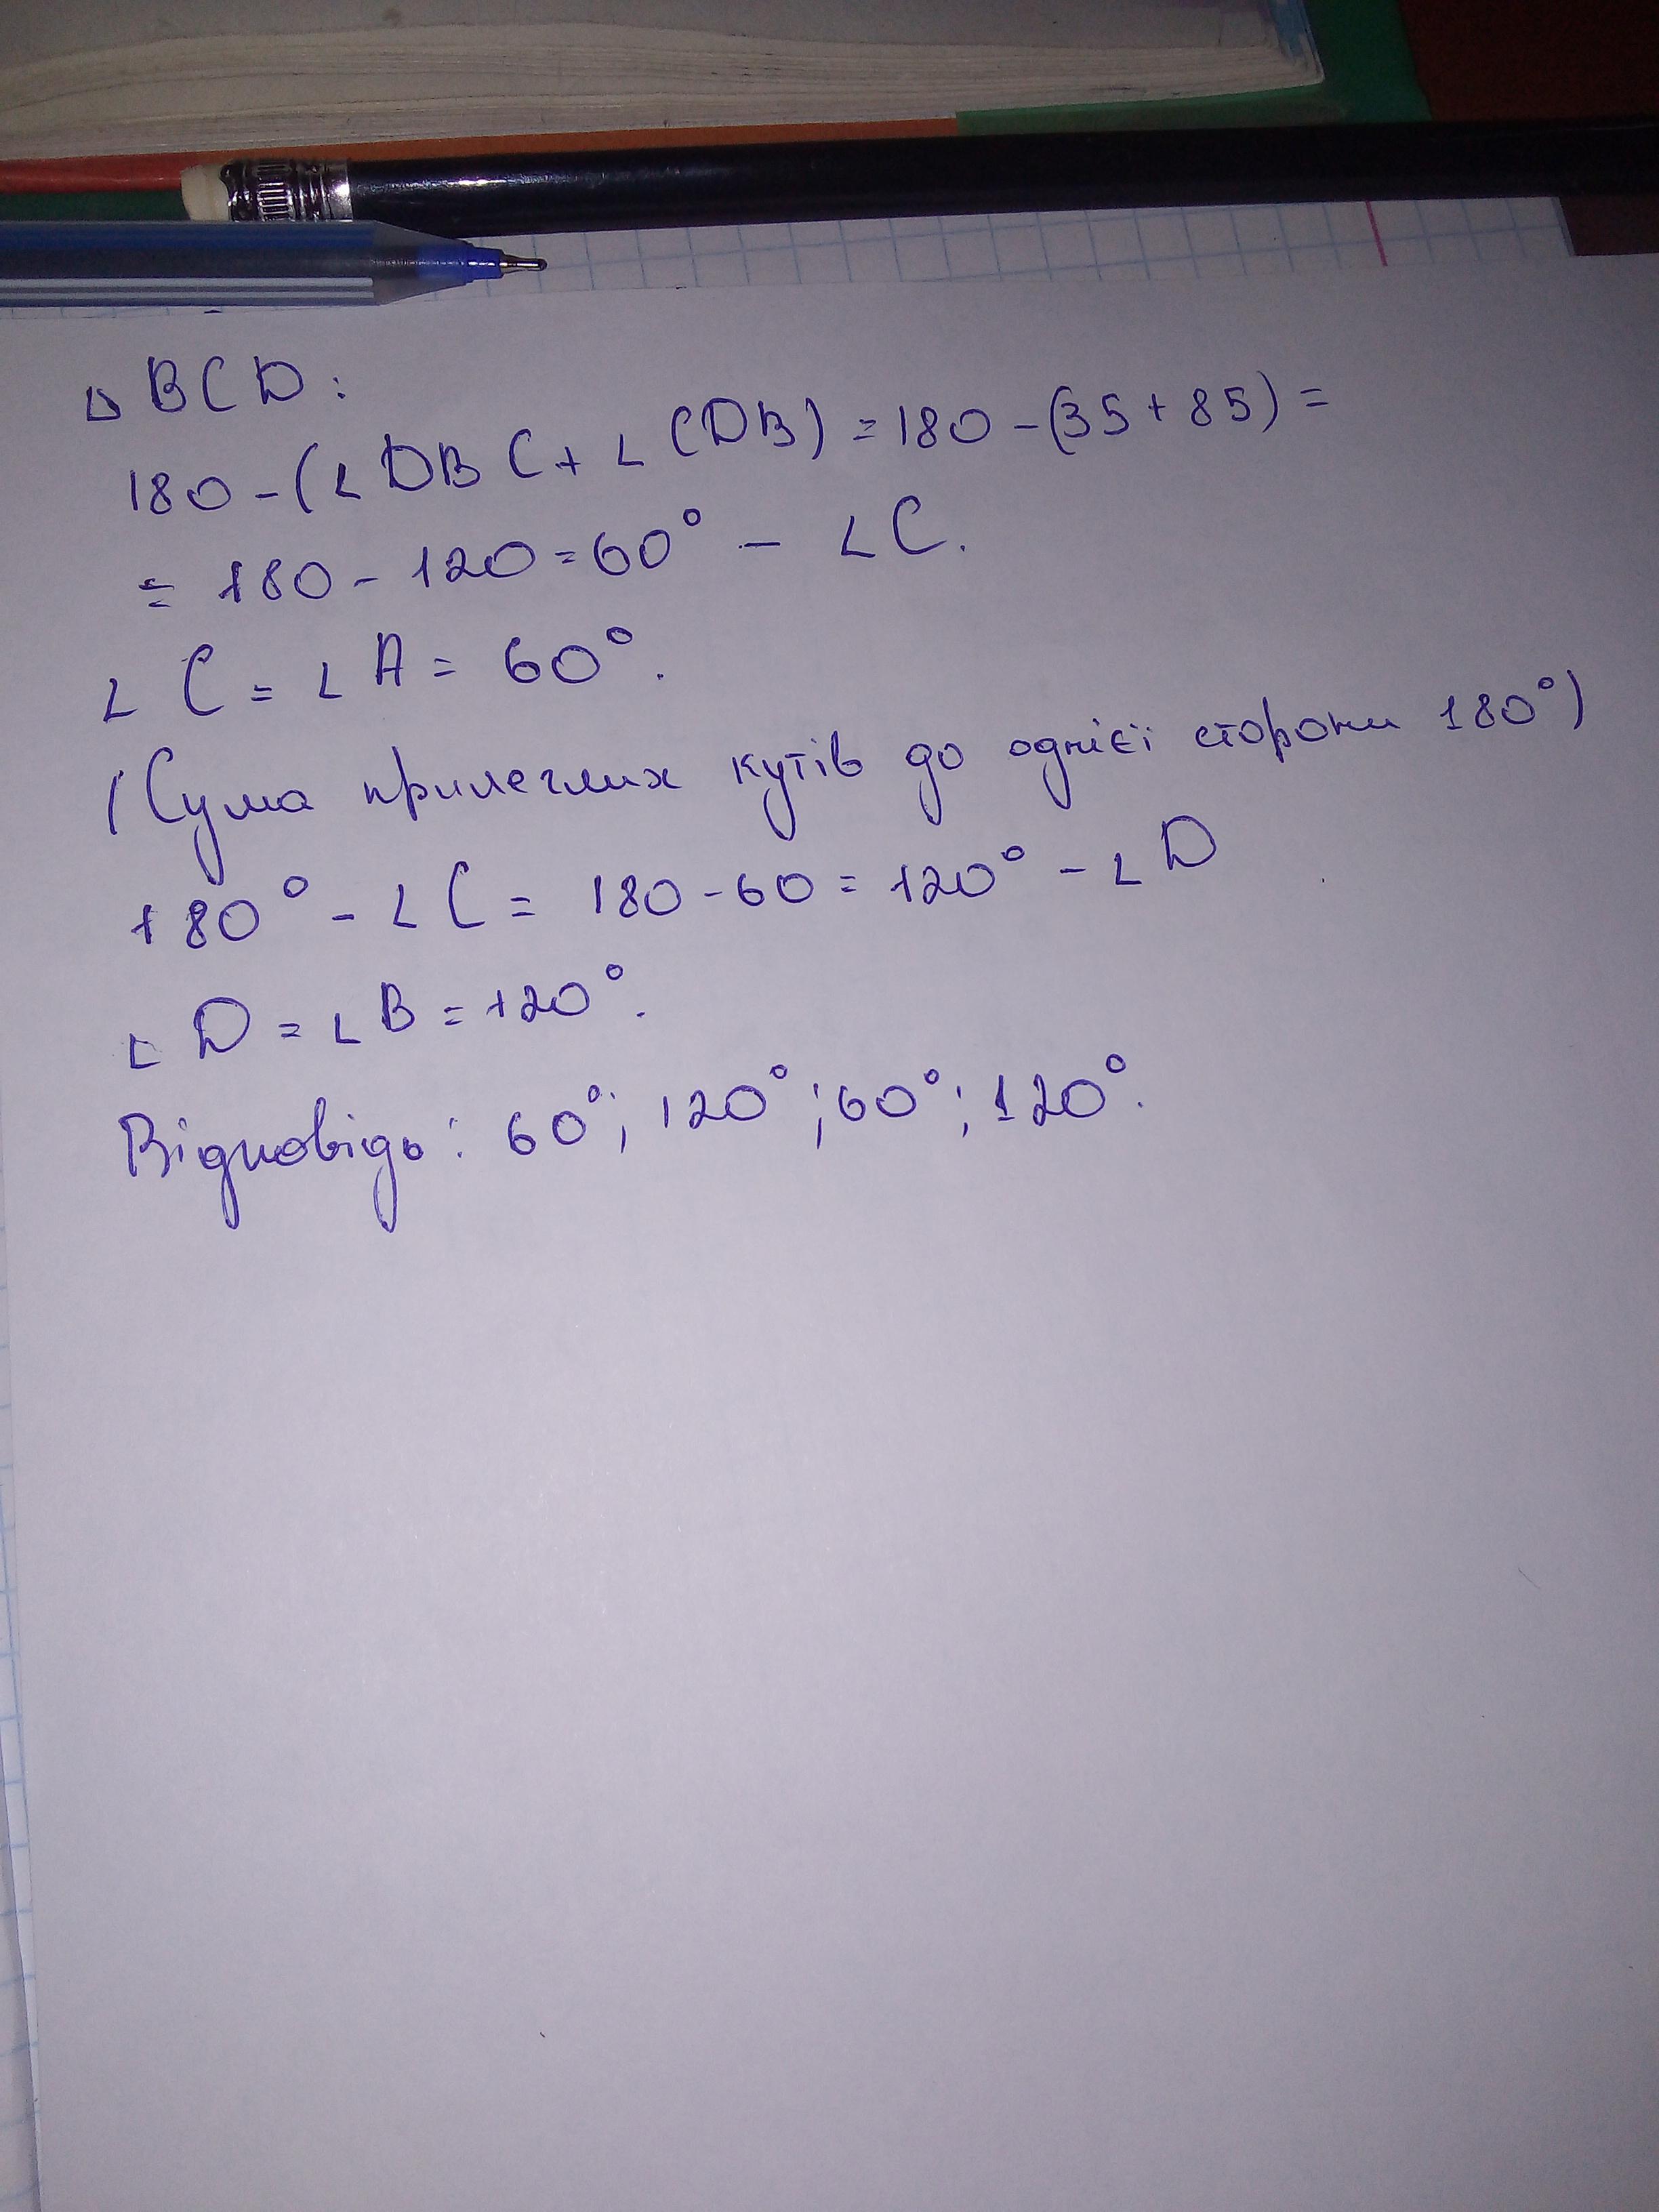 Δ BCD:
180 - (∠DBC + ∠CDB) = 180 - (35 + 85) =
= 180 - 120 = 60° - ∠C.
∠C = ∠A = 60°.
(Сума прилеглих кутів до однієї сторони 180°)
180° - ∠C = 180 - 60 = 120° - ∠D
∠D = ∠B = 120°.
Відповідь: 60°; 120°; 60°; 120°.